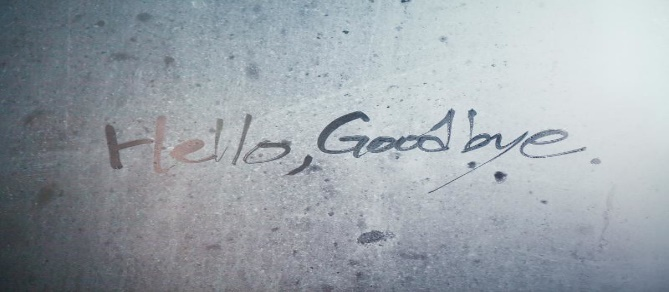 Hello, Goodbye.